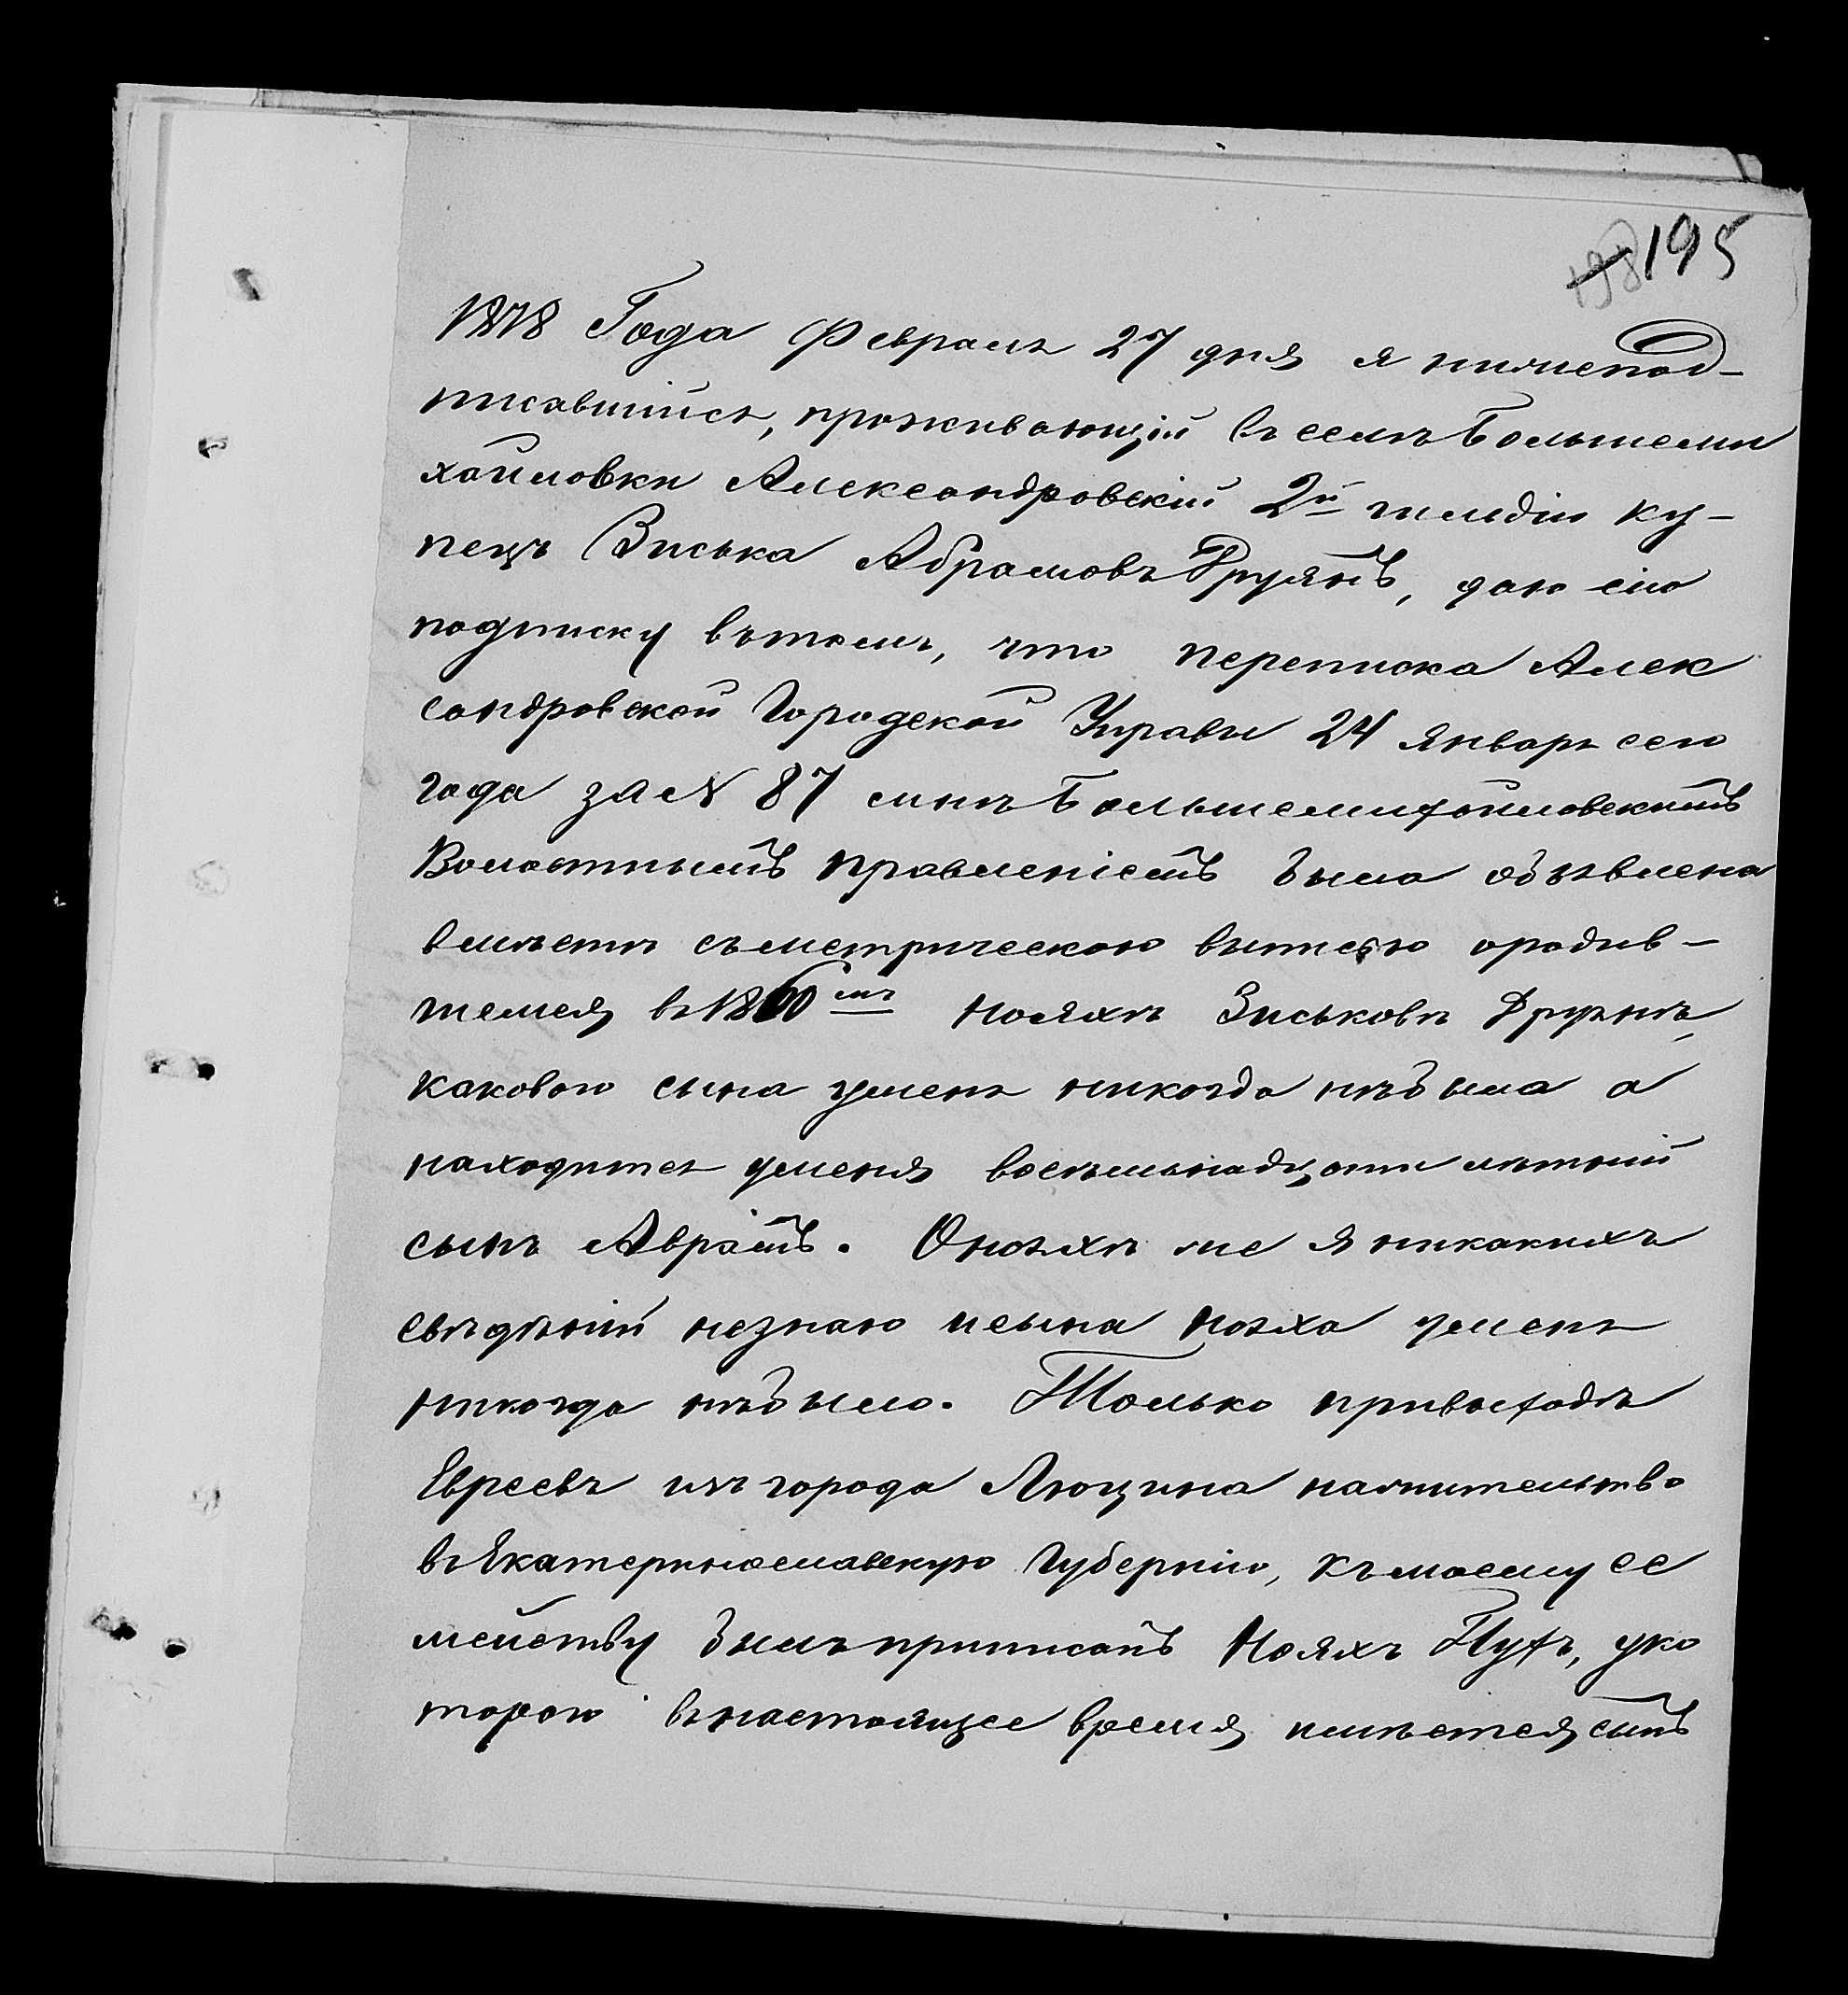 198 195
1878 Года Февраля 27 дня я нижепод-
писавшійся, проживающій въ селѣ Большеми
хайловки Александровскій 2й гильдіи ку-
пецъ Зиська Абрамовъ Друянъ, даю сію
подписку вътомъ, что переписка Алек
сандровской Городской Управы 24 январь сего
года за № 87 мнѣ Большемихайловскимъ
Волостнымъ правленіемъ была объявлена
вмѣстѣ съметрическою выписью ородив-
шемся въ 1860мъ Нояхѣ Зиськовѣ Друянѣ,
каковаго сына уменя никогда нѣбыла а
находится уменя восѣмьнадцати лѣтній
сынъ Аврамъ. Оноахѣ же я никакихъ
свѣдѣній незнаю исына Нояха уменя
никогда нѣбыло. Только привыходѣ
Евреевъ изъ города Люцина нажительство
въ Екатеринославскую Губернію, къмоему се
мейству былъ приписанъ Нояхъ Пухъ, уко
тораго внастоящее время имѣется сынъ